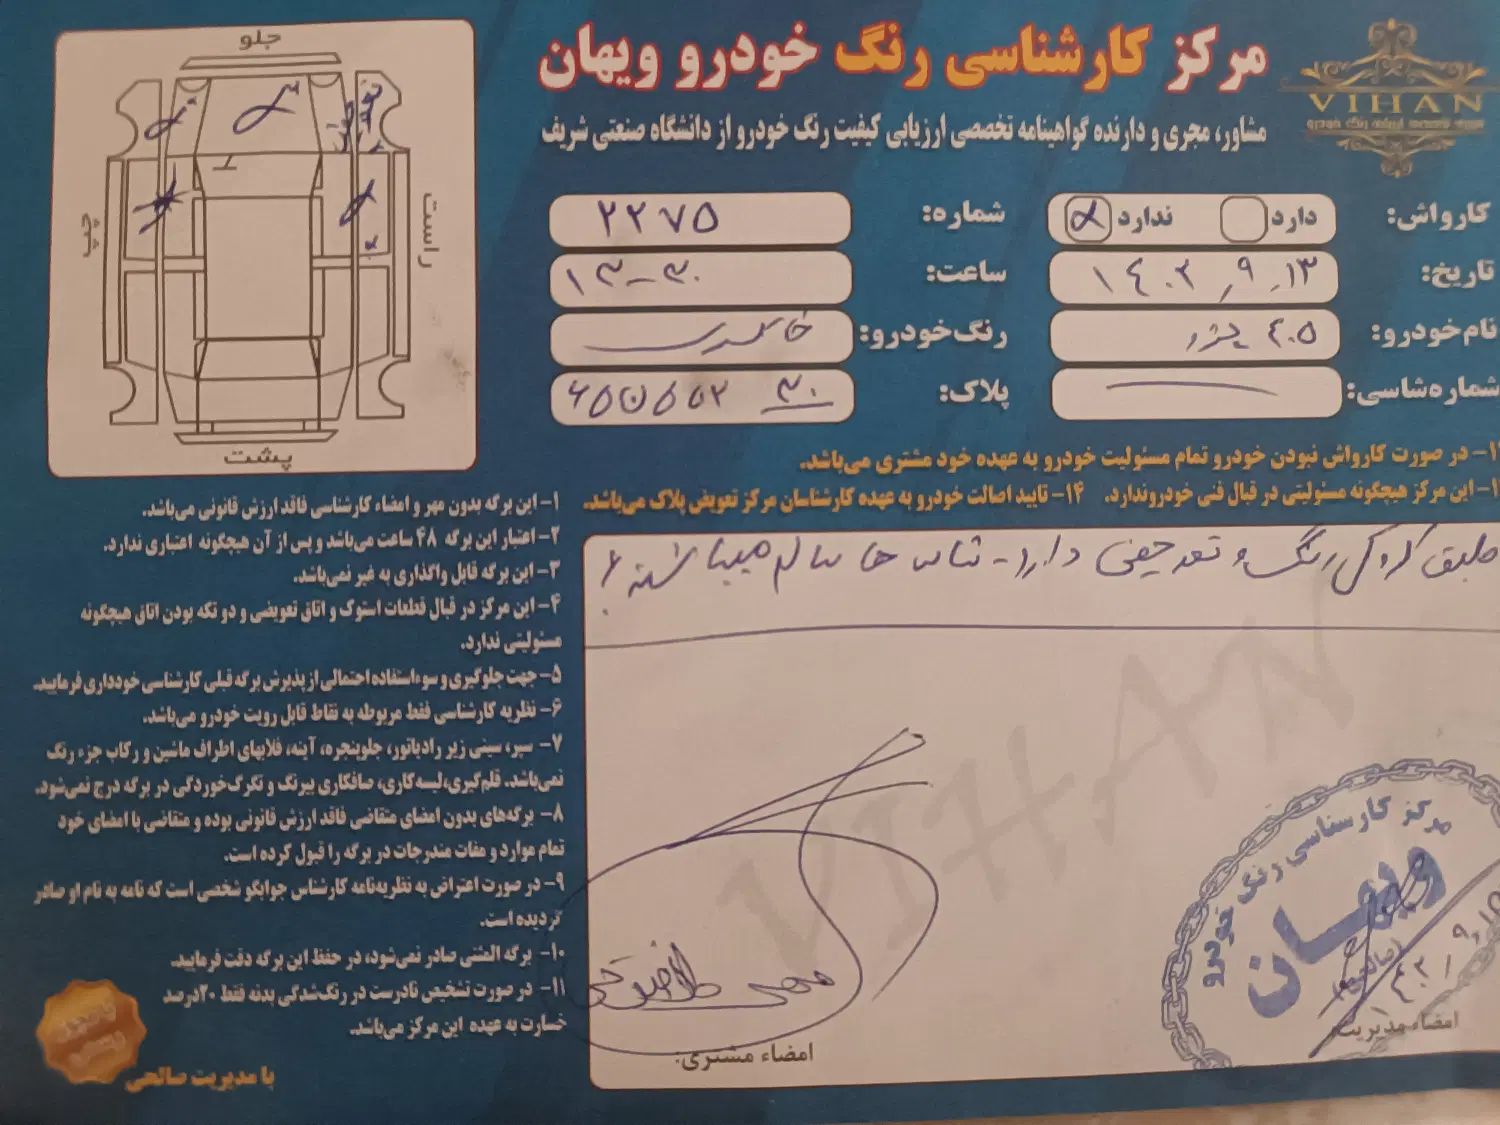 مرکز کارشناسی رنگ خودرو ویهان
VIHAN
مشاور، مجری و دارنده گواهینامه تخصصی ارزیابی کیفیت رنگ خودرو از دانشگاه صنعتی شریف
جلو
راست
چپ
پشت
کارواش: دارد ندارد
شماره: ۲۲۷۵
تاریخ: ۱۴۰۲٫۹٫۱۳
ساعت: ۱۳-۳۰
نام‌خودرو: پژو ۴۰۵
رنگ‌خودرو: خاکستری
شماره‌شاسی:
پلاک:
۱۲- در صورت کارواش نبودن خودرو تمام مسئولیت خودرو به عهده خود مشتری می‌باشد.
۱۳- این مرکز هیچگونه مسئولیتی در قبال فنی خودروندارد. ۱۴- تایید اصالت خودرو به عهده کارشناسان مرکز تعویض پلاک می‌باشد.
طبق کروکی رنگ و تعویضی دارد - شاسی ها سالم میباشند
۱- این برگه بدون مهر و امضاء کارشناسی فاقد ارزش قانونی می‌باشد.
۲- اعتبار این برگه ۴۸ ساعت می‌باشد و پس از آن هیچگونه اعتباری ندارد.
۳- این برگه قابل واگذاری به غیر نمی‌باشد.
۴- این مرکز در قبال قطعات استوک و اتاق تعویضی و دو تکه بودن اتاق هیچگونه
مسئولیتی ندارد.
۵- جهت جلوگیری و سوءاستفاده احتمالی از پذیرش برگه قبلی کارشناسی خودداری فرمایید.
۶- نظریه کارشناسی فقط مربوطه به نقاط قابل رویت خودرو می‌باشد.
۷- سپر، سینی زیر رادیاتور، جلوپنجره، آینه، قلابهای اطراف ماشین و رکاب جزء رنگ
نمی‌باشد. قلم‌گیری،لیسه‌کاری، صافکاری بیرنگ و تگرگ‌خوردگی در برگه درج نمی‌شود.
۸- برگه‌های بدون امضای متقاضی فاقد ارزش قانونی بوده و متقاضی با امضای خود
تمام موارد و مفات مندرجات در برگه را قبول کرده است.
۹- در صورت اعتراض به نظریه‌نامه کارشناس جوابگو شخصی است که نامه به نام او صادر
گردیده است.
۱۰- برگه المثنی صادر نمی‌شود، در حفظ این برگه دقت فرمایید.
۱۱- در صورت تشخیص نادرست در رنگ‌شدگی بدنه فقط ۲۰درصد
خسارت به عهده این مرکز می‌باشد.
با مدیریت صالحی
امضاء مشتری:
امضاء مدیریت:
مرکز کارشناسی رنگ خودرو
ویهان
(صالحی)
VIHAN